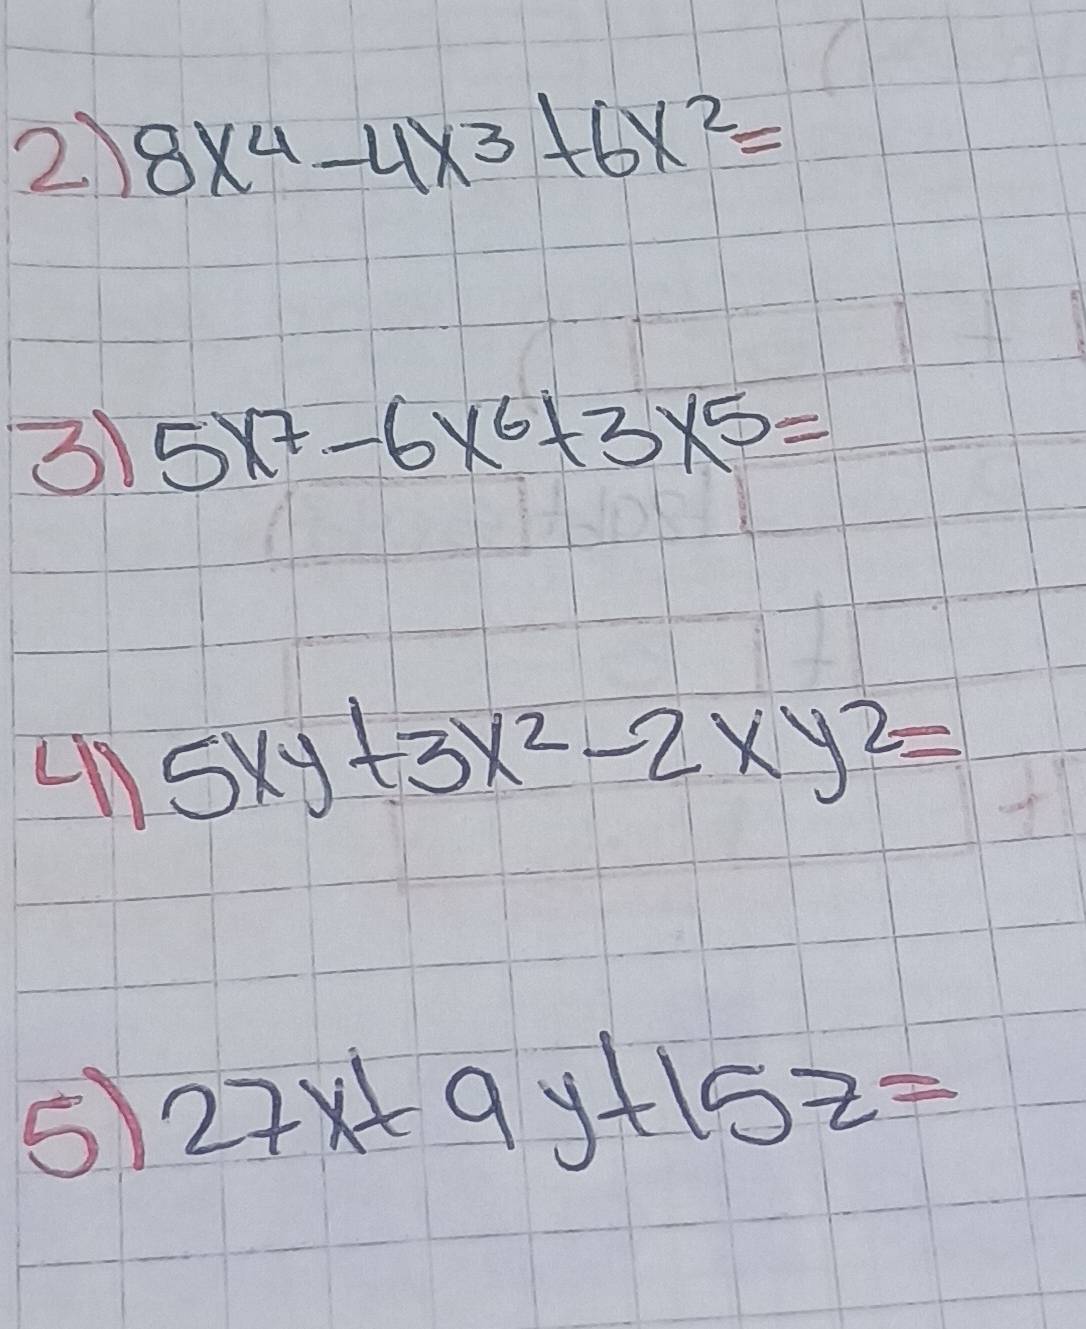 2) 8x⁴ - 4x³ + 6x² =
3) 5x⁷ - 6x⁶ + 3x⁵ =
4) 5xy + 3x² - 2xy² =
5) 27x + 9y + 15z =